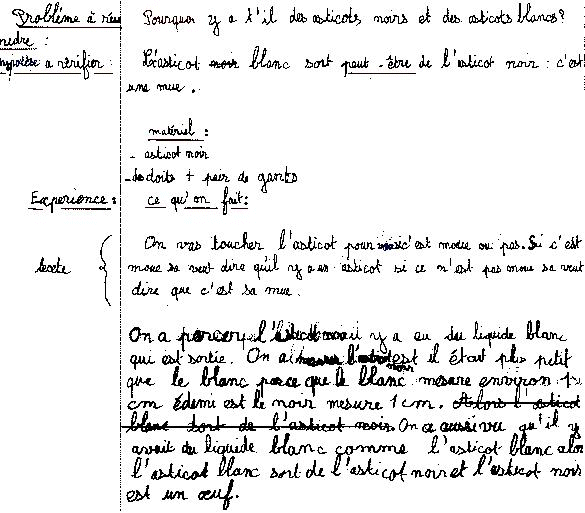 Problème à résou
Pourquoi y a t'il des asticots noirs et des asticots blancs?
nedre :
hypotèse a vérifier :
L'asticot noir blanc sort peut-être de l'asticot noir : c'est
une mue.
matériel :
- asticot noir
- des doits + pair de gants
Expérience :
ce qu'on fait :
On vas toucher l'asticot pour voir si c'est moue ou pas. Si c'est
texte
moue sa veut dire qu'il y a un asticot si ce n'est pas moue sa veut
dire que c'est sa mue.
On a percer l'asticot noir il y a eu du liquide blanc
qui est sortie. On a mesurer l'asticot noir est il était plus petit
que le blanc parce que le blanc mesure environ 1
cm édemi est le noir mesure 1 cm. Alors l'asticot
blanc sort de l'asticot noir On a aussi vu qu'il y
avait du liquide blanc comme l'asticot blanc alor
l'asticot blanc sort de l'asticot noir et l'asticot noir
est un œuf.